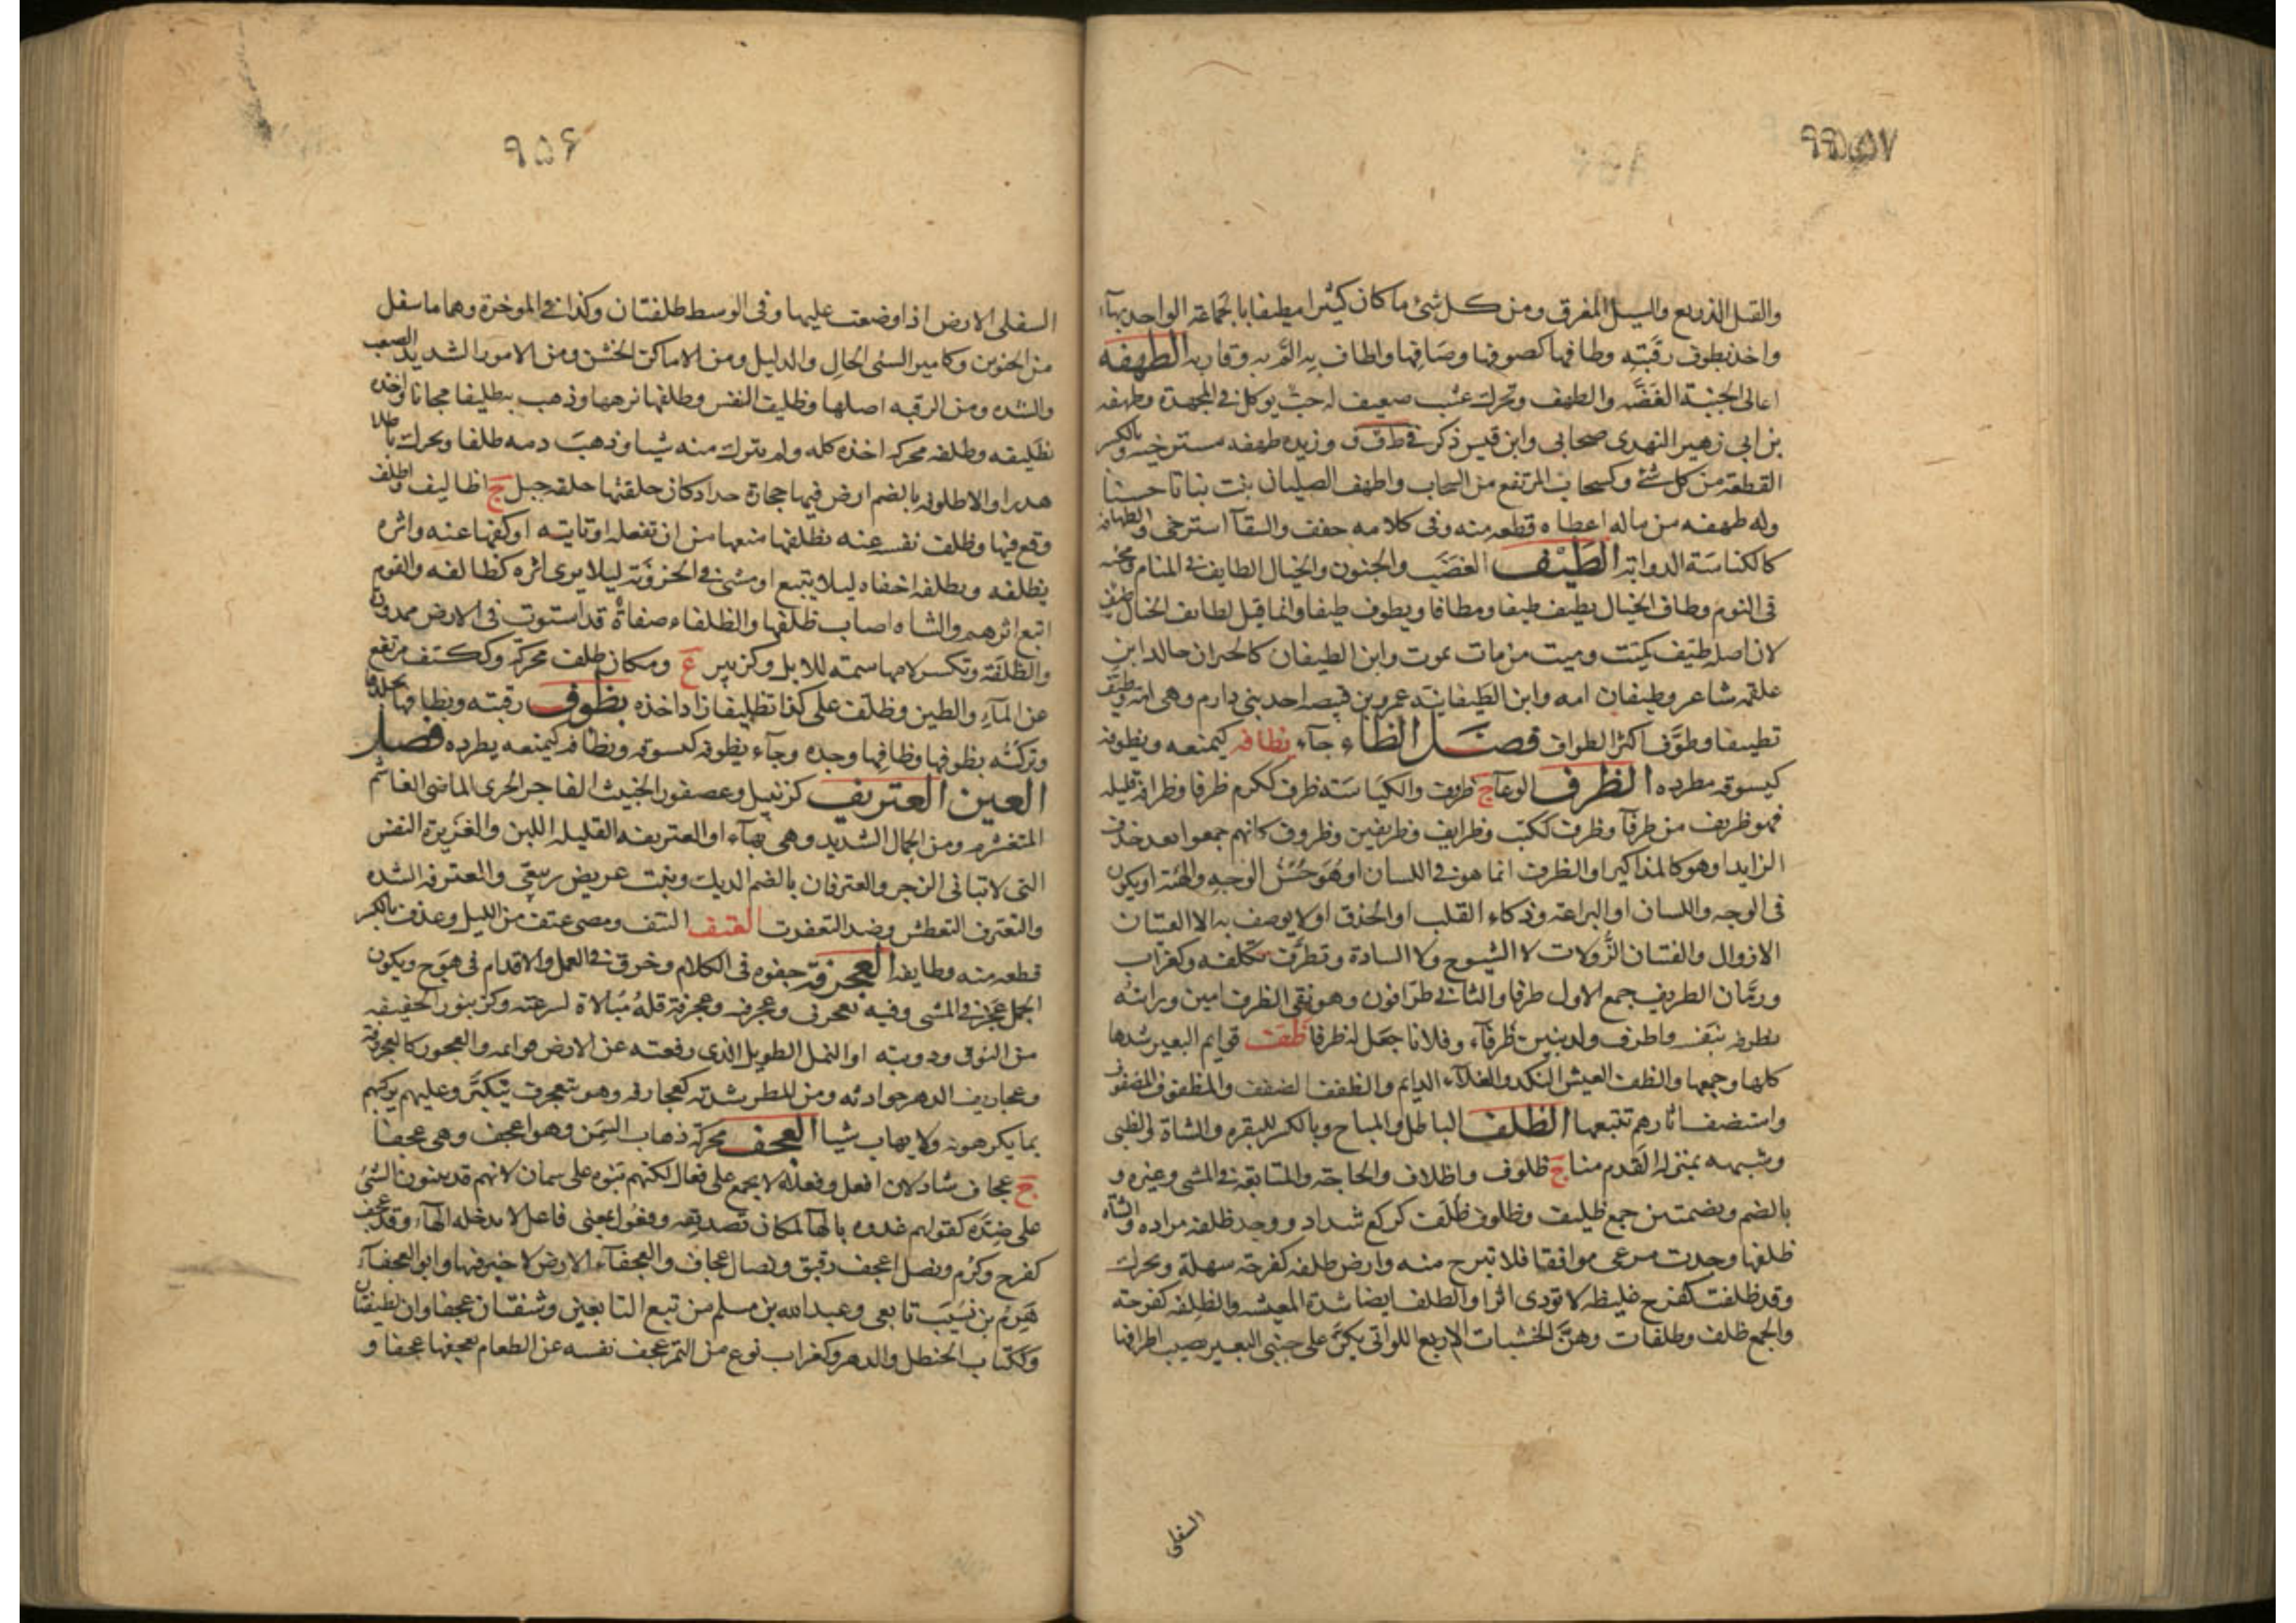 والقتل الذريع والسيل المغرق ومن كل شئ ماكان كثيرا مطيفا بالجماعة الواحد بهآء
واخذ بطوف رقبته وطافها كصوفها وصافها واطاف به الم به وقاربه الطهفه
اعالى الجنبة الغضه والطهف ويحرك عشب ضعيف له حب يوكل فى المجهدة وطهفه
بن ابى زهير النهدى صحابى وابن قيس ذكر فى طف ف وزبده طهفه مسترخيه وبالكسر
القطعة من كل شئ وكسحاب المرتفع من السحاب واطهف الصليان نبت نباتا حسنا
وله طهفه من ماله اعطاه قطعه منه وفى كلامه خفف والسقآ استرخى والطهافه
كالكناسة الدوابة الطيف الغضب والجنون والخيال الطايف فى المنام ومجيه
فى النوم وطاف الخيال يطيف طيفا ومطافا ويطوف طيفا وانما قيل لطايف الخيال طيف
لان اصله طيف كميت وميت من مات يموت وابن الطيفان كالحيران خالد ابن
علقمه شاعر وطيفان امه وابن الطيفانية عمرو بن قبيصه احد بنى دارم وهى امه وطيف
تطييفا وطوف اكثر الطواف فصل الظاء جآء يظافه كيمنعه ويظوفه
كيسوقه يطرده الظرف الوعآ ج ظروف والكياسة ظرف ككرم ظرفا وظرافة قليله
فهو ظريف من ظرفآ وظرف ككتب وظرايف وظريفين وظروف كانهم جمعوا بعد حذف
الزايد او هو كالمذاكير او الظرف انما هو فى اللسان او هو حسن الوجه والهيئة او يكون
فى الوجه واللسان او البراعة وذكاء القلب او الحذق او لا يوصف به الا الفتيان
الازوال والفتيان الزولات لا الشيوخ ولا السادة وتظرف تكلفه وكغراب
ورمان الظريف جمع الاول ظرفا والثانى ظرافون وهو نقى الظرف امين ورايته
بظرفه بنفسه واظرف ولد بنين ظرفآء وفلانا جعل له ظرفا ظف قوايم البعير شدها
كلها وجمعها والظف العيش النكد والغلآء الدايم والظفف الضفف والمظفوف المضفوف
واستظف اثارهم تتبعها الظلف الباطل والمباح وبالكسر للبقره والشاة والظبى
وشبهه بمنزلة القدم منا ج ظلوف واظلاف والحاجة والمتابعة فى المشى وغيره و
بالضم وبضمتين جمع ظليف وظلوف ظلف كركع شداد ووجد ظلفه مراده والشاة
ظلفها وجدت مرعى موافقا فلا تبرح منه وارض ظلفه كفرحة سهلة ويحرك
وقد ظلفت كفرح غليظه لا تودى اثرا والظلف ايضا شدة المعيشه والظلفه كفرحته
والجمع ظلف وظلفات وهن الخشبات الاربع اللواتى يكن على جنبى البعير تصيب اطرافها
السفلى
٩٥٦
السفلى الارض اذا وضعت عليها وفى الوسط ظلفتان وكذا فى الموخرة وهما ما سفل
من الحنوين وكامير السئ الحال والذليل ومن الاماكن الخشن ومن الامور الشديد الصعب
والشده ومن الرقبه اصلها وظليف النفس وظلفها نزهها وذهب بظليفا مجانا واخذه
بظليفه وظلفه محركه اخذه كله ولم يترك منه شيا وذهب دمه ظلفا ويحرك باطلا
هدرا والاظلوفه بالضم ارض فيها حجارة حداد كان خلقتها خلقة جبل ج اظاليف واظلف
وقع فيها وظلف نفسه عنه يظلفها منعها من ان تفعله او تاتيه او كفها عنه واثره
يظلفه ويظلفه اخفاه ليلا يتبع او مشى فى الحزونة ليلا يرى اثره كظالفه والقوم
اتبع اثرهم والشاه اصاب ظلفها والظلفاء صفاة قد استوت فى الارض ممدودة
والظلفة وتكسر لامها سمته للابل وكزبير ع ومكان ظلف محركة وككتف مرتفع
عن المآء والطين وظلف على كذا تظليفا زاد اخذه بظوف رقبته وبظافها بجلدها
وتركته بظوفها وظافها وحده وجآء يظوفه كيسوقه ويظافه كيمنعه يطرده فصل
العين العتريف كزنبيل وعصفور الخبيث الفاجر الجرى الماضى الغاشم
المتغشرم ومن الجمال الشديد وهى بهآء او العتريفه القليله اللبن والعزيزة النفس
التى لا تبالى الزجر والعترفان بالضم الديك ونبت عريض ربيعى والعترفه الشده
والتعترف التغطرش وضد التعفرت العتف النتف ومضى عتف من الليل وعدف بالكسر
قطعه منه وطايفه العجرفة جفوه فى الكلام وخرق فى العمل والاقدام فى هوج ويكون
الجمل عجرفى المشى وفيه تعجرف وعجرفه وعجرفية قلة مبالاة لسرعته وكزنبور الخفيفه
من النوق ودويبه او النمل الطويل الذى رفعته عن الارض قوايمه والعجوز كالعجروفة
وعجاريف الدهر حوادثه ومن المطر شدته كعجارفه وهو يتعجرف يتكبر وعليهم يركبهم
بما يكرهونه ولا يهاب شيا العجف محركة ذهاب السمن وهو اعجف وهى عجفا
ج عجاف شاذ لان افعل وفعلآء لا يجمع على فعال لكنهم بنوه على سمان لانهم قد يبنون الشئ
على ضده كقولهم عدوه بالهآ لمكان صديقه وفعول بمعنى فاعل لا تدخله الهآء وقد عجف
كفرح وكرم ونصل اعجف رقيق ونصال عجاف والعجفآء الارض لا خير فيها وابو العجفآء
هرم بن نسيب تابعى وعبد الله بن مسلم من تبع التابعين وشفتان عجفاوان لطيفتان
وككتاب الحنطل والدهر وكغراب نوع من التمر عجف نفسه عن الطعام يعجفها عجفا و